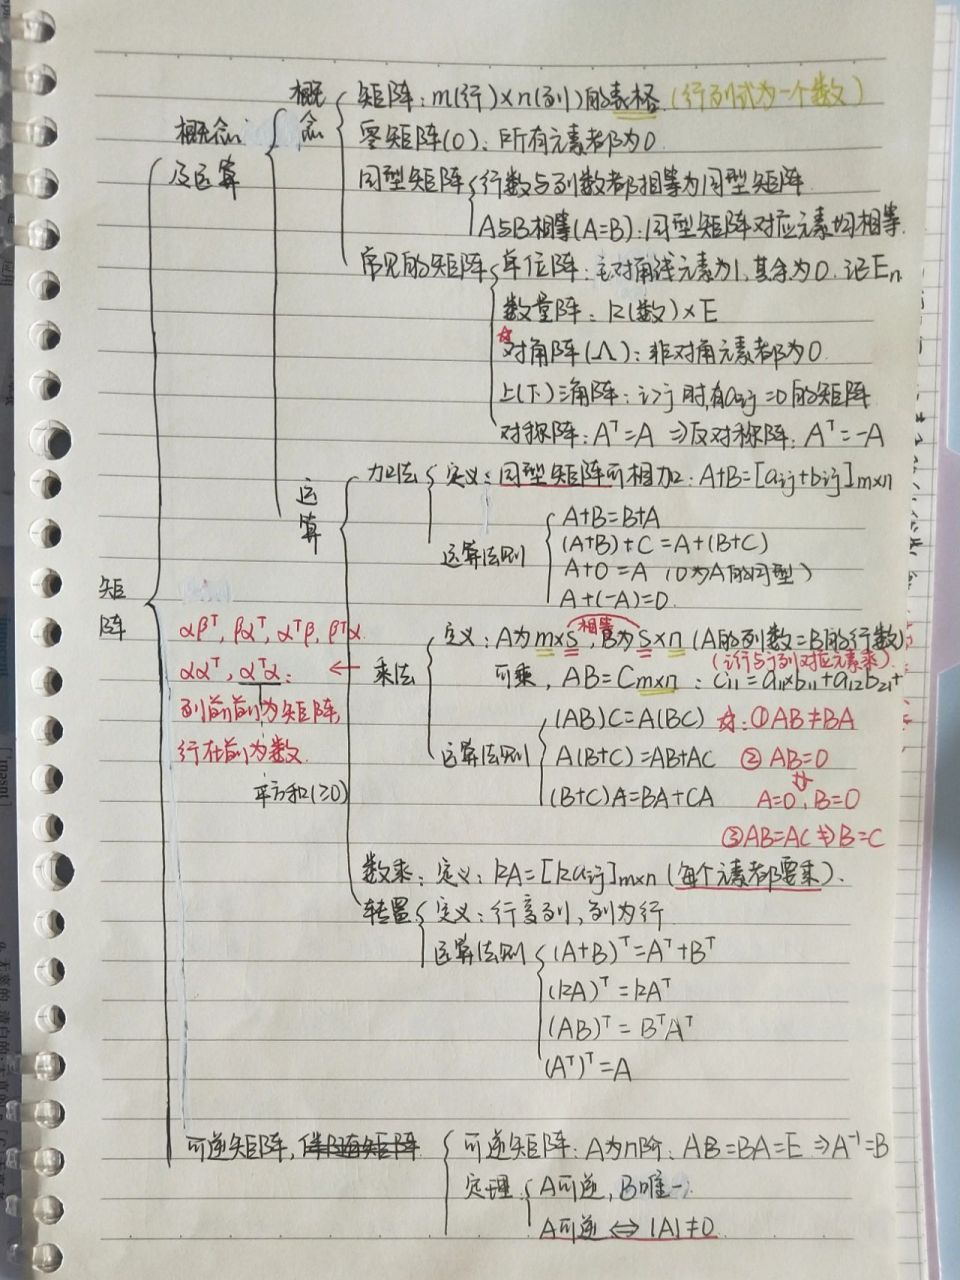 概念 矩阵：m(行)×n(列)的表格（行列式为一个数）
概念及运算 零矩阵(O)：所有元素都为0.
同型矩阵 行数与列数都相等为同型矩阵
A与B相等(A=B)：同型矩阵对应元素均相等.
常见的矩阵 单位阵：主对角线元素为1,其余为0.记En
数量阵：k(数)×E
☆对角阵(Λ)：非对角元素都为0.
上(下)三角阵：i>j时,有aij=0的矩阵
对称阵：Aᵀ=A ⇒反对称阵：Aᵀ=-A
运算 加法 定义：同型矩阵可相加：A+B=[aij+bij]m×n
运算法则 A+B=B+A
(A+B)+C=A+(B+C)
A+O=A（O为A的同型）
A+(-A)=O.
矩阵
αβᵀ, βαᵀ, αᵀβ, βᵀα
ααᵀ, αᵀα：
列在前为矩阵,
行在前为数.
平方和(≥0)
← 乘法 定义：A为m×s, B为s×n (A的列数=B的行数)
相等
(i行与j列对应元素乘).
可乘，AB=Cm×n：c11=a11×b11+a12b21+
运算法则 (AB)C=A(BC) ☆：①AB≠BA
A(B+C)=AB+AC ②AB=O
⇏
(B+C)A=BA+CA A=O,B=O
③AB=AC⇏B=C
数乘：定义：kA=[kaij]m×n（每个元素都要乘）.
转置 定义：行变列，列为行
运算法则 (A+B)ᵀ=Aᵀ+Bᵀ
(kA)ᵀ=kAᵀ
(AB)ᵀ=BᵀAᵀ
(Aᵀ)ᵀ=A
可逆矩阵，伴随矩阵 可逆矩阵：A为n阶，AB=BA=E ⇒A⁻¹=B
定理 A可逆，B唯一
A可逆⇔|A|≠0